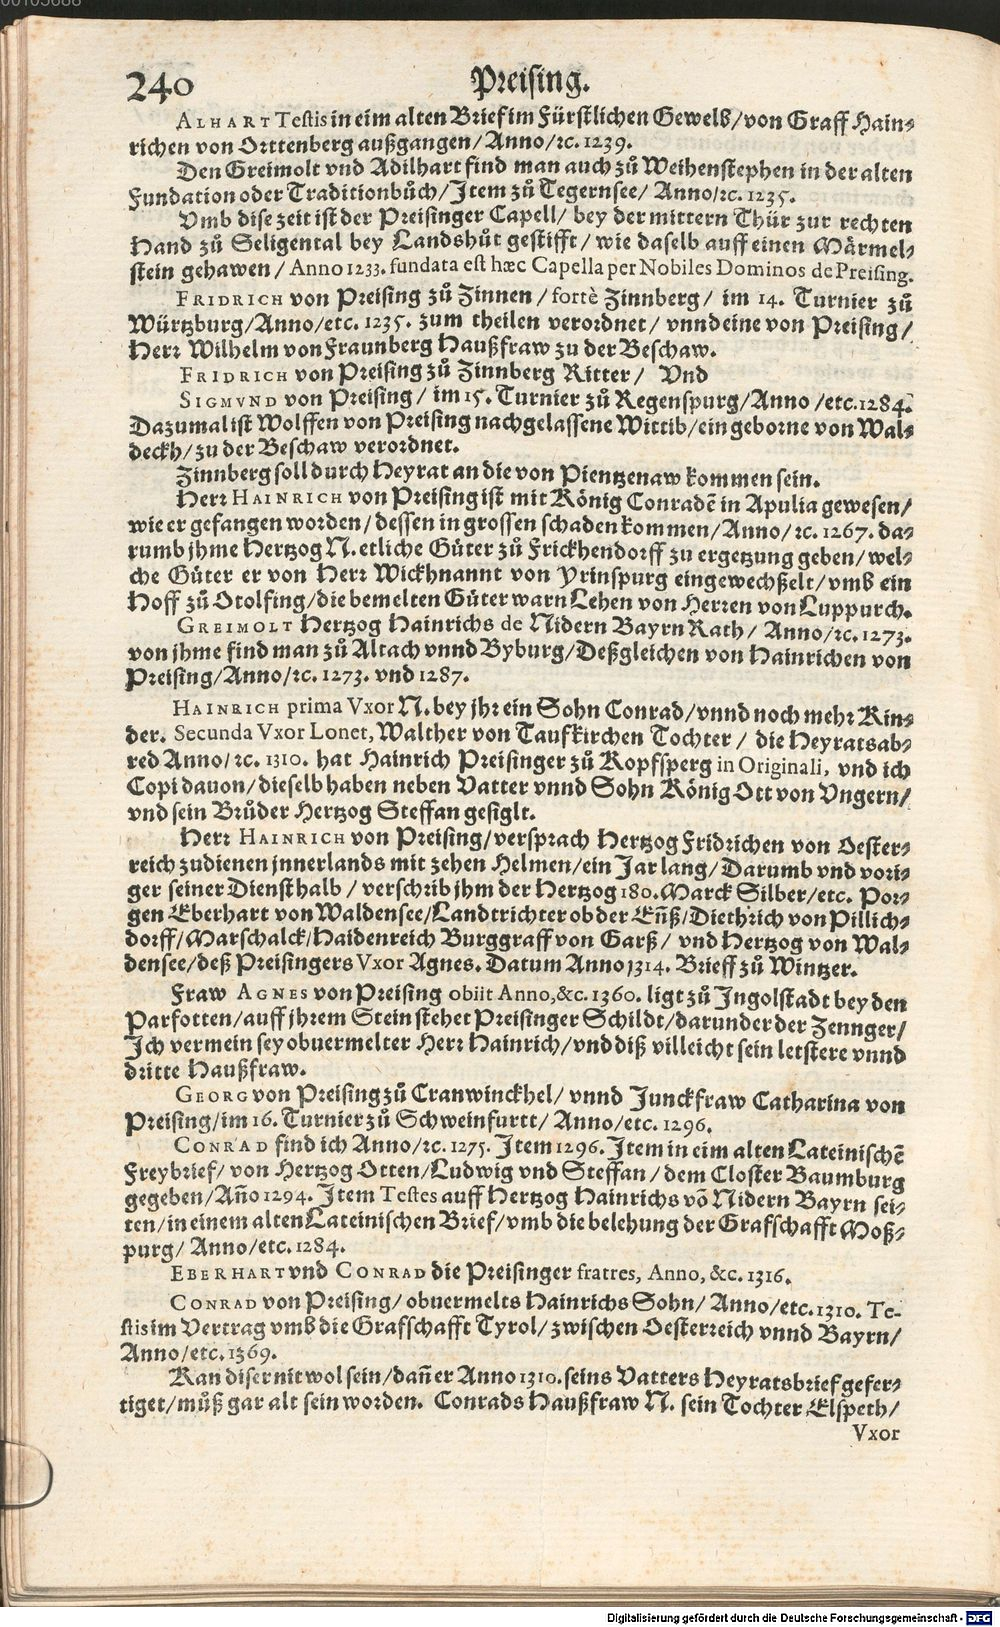 240 Preising.
ALHART Testis in eim alten Brief im Fürstlichen Gewelb/von Graff Hain-
richen von Orttenberg außgangen/Anno/ꝛc. 1239.
Den Greimolt vnd Adilhart find man auch zů Weihenstephen in der alten
Fundation oder Traditionbůch/Item zů Tegernsee/ Anno/ꝛc. 1235.
Vmb dise zeit ist der Preisinger Capell/ bey der mittern Thür zur rechten
Hand zů Seligental bey Landshůt gestifft/ wie daselb auff einen Märmel-
stein gehawen/ Anno 1233. fundata est hæc Capella per Nobiles Dominos de Preising.
FRIDRICH von Preising zů Zinnen/ fortè Zinnberg/ im 14. Turnier zů
Würtzburg/Anno/etc. 1235. zum theilen verordnet/ vnnd eine von Preising/
Herr Wilhelm von Fraunberg Haußfraw zu der Beschaw.
FRIDRICH von Preising zů Zinnberg Ritter/ Vnd
SIGMVND von Preising/ im 15. Turnier zů Regenspurg/Anno/etc. 1284.
Dazumal ist Wolffen von Preising nachgelassene Wittib/ein geborne von Wal-
deckh/zu der Beschaw verordnet.
Zinnberg soll durch Heyrat an die von Pientzenaw kommen sein.
Herr HAINRICH von Preising ist mit König Conradē in Apulia gewesen/
wie er gefangen worden/dessen in grossen schaden kommen/Anno/ꝛc. 1267. da-
rumb jhme Hertzog N. etliche Güter zů Frickhendorff zu ergetzung geben/wel-
che Güter er von Herr Wickhnannt von Yrinspurg eingewechßelt/vmb ein
Hoff zů Otolfing/die bemelten Güter warn Lehen von Herren von Luppurch.
GREIMOLT Hertzog Hainrichs de Nidern Bayrn Rath/ Anno/ꝛc. 1273.
von jhme find man zů Altach vnnd Byburg/Deßgleichen von Hainrichen von
Preising/Anno/ꝛc. 1273. vnd 1287.
HAINRICH prima Vxor N. bey jhr ein Sohn Conrad/vnnd noch mehr Kin-
der. Secunda Vxor Lonet, Walther von Taufkirchen Tochter/ die Heyratsab-
red Anno/ꝛc. 1310. hat Hainrich Preisinger zů Kopfsperg in Originali, vnd ich
Copi dauon/dieselb haben neben Vatter vnnd Sohn König Ott von Vngern/
vnd sein Brůder Hertzog Steffan gesiglt.
Herr HAINRICH von Preising/versprach Hertzog Fridrichen von Oester-
reich zudienen jnnerlands mit zehen Helmen/ein Jar lang/Darumb vnd vori-
ger seiner Dienst halb/ verschrib jhm der Hertzog 180. Marck Silber/etc. Por-
gen Eberhart von Waldensee/Landtrichter ob der Eñß/Diethrich von Pillich-
dorff/Marschalck/Haidenreich Burggraff von Garß/ vnd Hertzog von Wal-
densee/deß Preisingers Vxor Agnes. Datum Anno 1314. Brieff zů Wintzer.
Fraw AGNES von Preising obiit Anno,&c. 1360. ligt zů Ingolstadt bey den
Parfotten/auff jhrem Stein stehet Preisinger Schildt/darunder der Zennger/
Ich vermein sey obuermelter Herr Hainrich/vnd diß villeicht sein letstere vnnd
dritte Haußfraw.
GEORG von Preising zů Cranwinckhel/ vnnd Junckfraw Catharina von
Preising/im 16. Turnier zů Schweinfurtt/ Anno/etc. 1296.
CONRAD find ich Anno/ꝛc. 1275. Item 1296. Item in eim alten Lateinischē
Freybrief/ von Hertzog Otten/Ludwig vnd Steffan/ dem Closter Baumburg
gegeben/Añο 1294. Item Testes auff Hertzog Hainrichs võ Nidern Bayrn sei-
ten/in einem alten Lateinischen Brief/vmb die belehung der Grafschafft Moß-
purg/ Anno/etc. 1284.
EBERHART vnd CONRAD die Preisinger fratres, Anno, &c. 1316.
CONRAD von Preising/ obuermelts Hainrichs Sohn/ Anno/etc. 1310. Te-
stis im Vertrag vmb die Grafschafft Tyrol/ zwischen Oesterreich vnnd Bayrn/
Anno/etc. 1369.
Kan diser nit wol sein/dañ er Anno 1310. seins Vatters Heyratsbrief gefer-
tiget/můß gar alt sein worden. Conrads Haußfraw N. sein Tochter Elspeth/
Vxor
Digitalisierung gefördert durch die Deutsche Forschungsgemeinschaft - DFG